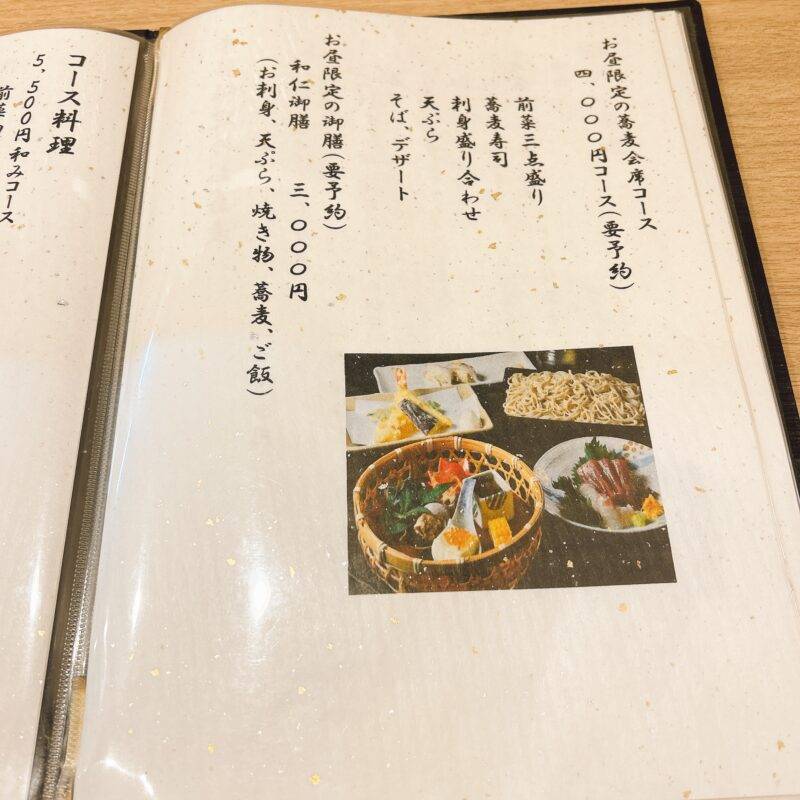 お昼限定の蕎麦会席コース
四、〇〇〇円コース(要予約)
前菜三点盛り
蕎麦寿司
刺身盛り合わせ
天ぷら
そば、デザート
お昼限定の御膳(要予約)
和仁御膳 三、〇〇〇円
(お刺身、天ぷら、焼き物、蕎麦、ご飯)
コース料理
5,500円和みコース
前菜